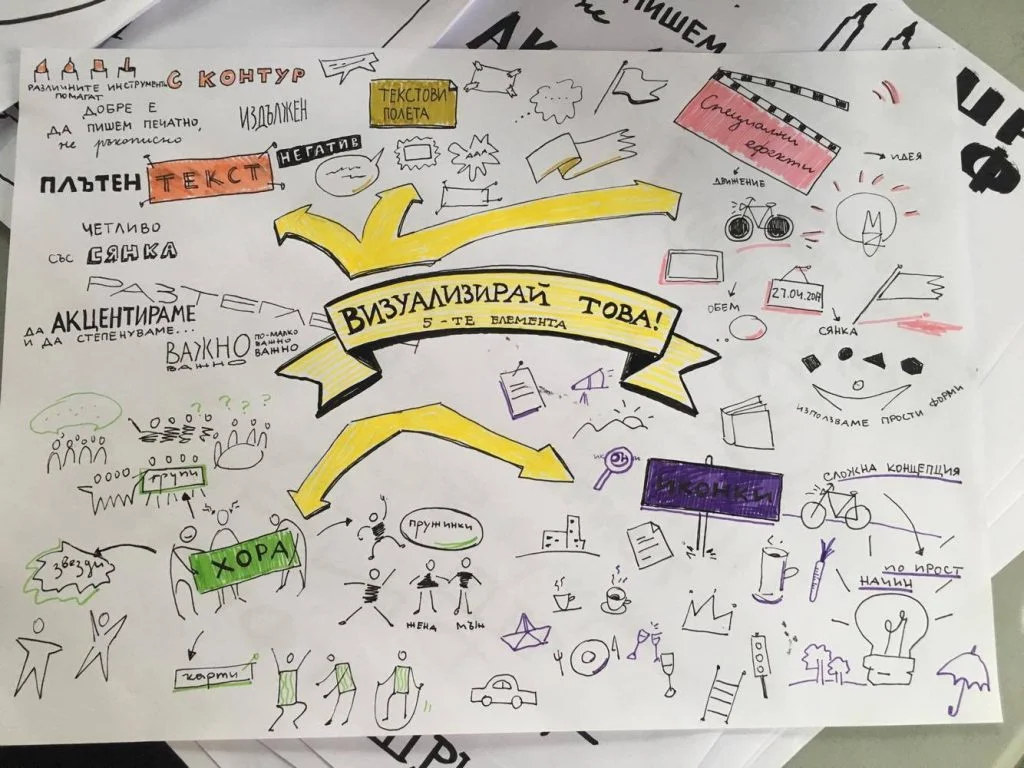 ПИШЕМ
не
РАЗЛИЧНИТЕ ИНСТРУМЕНТИ
ПОМАГАТ
С КОНТУР
ДОБРЕ Е
ДА ПИШЕМ ПЕЧАТНО,
не ръкописно
ИЗДЪЛЖЕН
ТЕКСТОВИ
ПОЛЕТА
НЕГАТИВ
ПЛЪТЕН ТЕКСТ
ЧЕТЛИВО
СЪС СЯНКА
ДА АКЦЕНТИРАМЕ
И ДА СТЕПЕНУВАМЕ...
ВАЖНО
ВАЖНО
ПО-МАЛКО
ВАЖНО
ВАЖНО
Специални
ефекти
ИДЕЯ
ДВИЖЕНИЕ
ОБЕМ
27.04.2017
СЯНКА
ИЗПОЛЗВАМЕ ПРОСТИ ФОРМИ
ВИЗУАЛИЗИРАЙ ТОВА!
5-ТЕ ЕЛЕМЕНТА
? ? ? ?
групи
ХОРА
звезди
карти
пружинки
ЖЕНА
МЪЖ
ИКОНКИ
СЛОЖНА КОНЦЕПЦИЯ
ПО ПРОСТ
НАЧИН